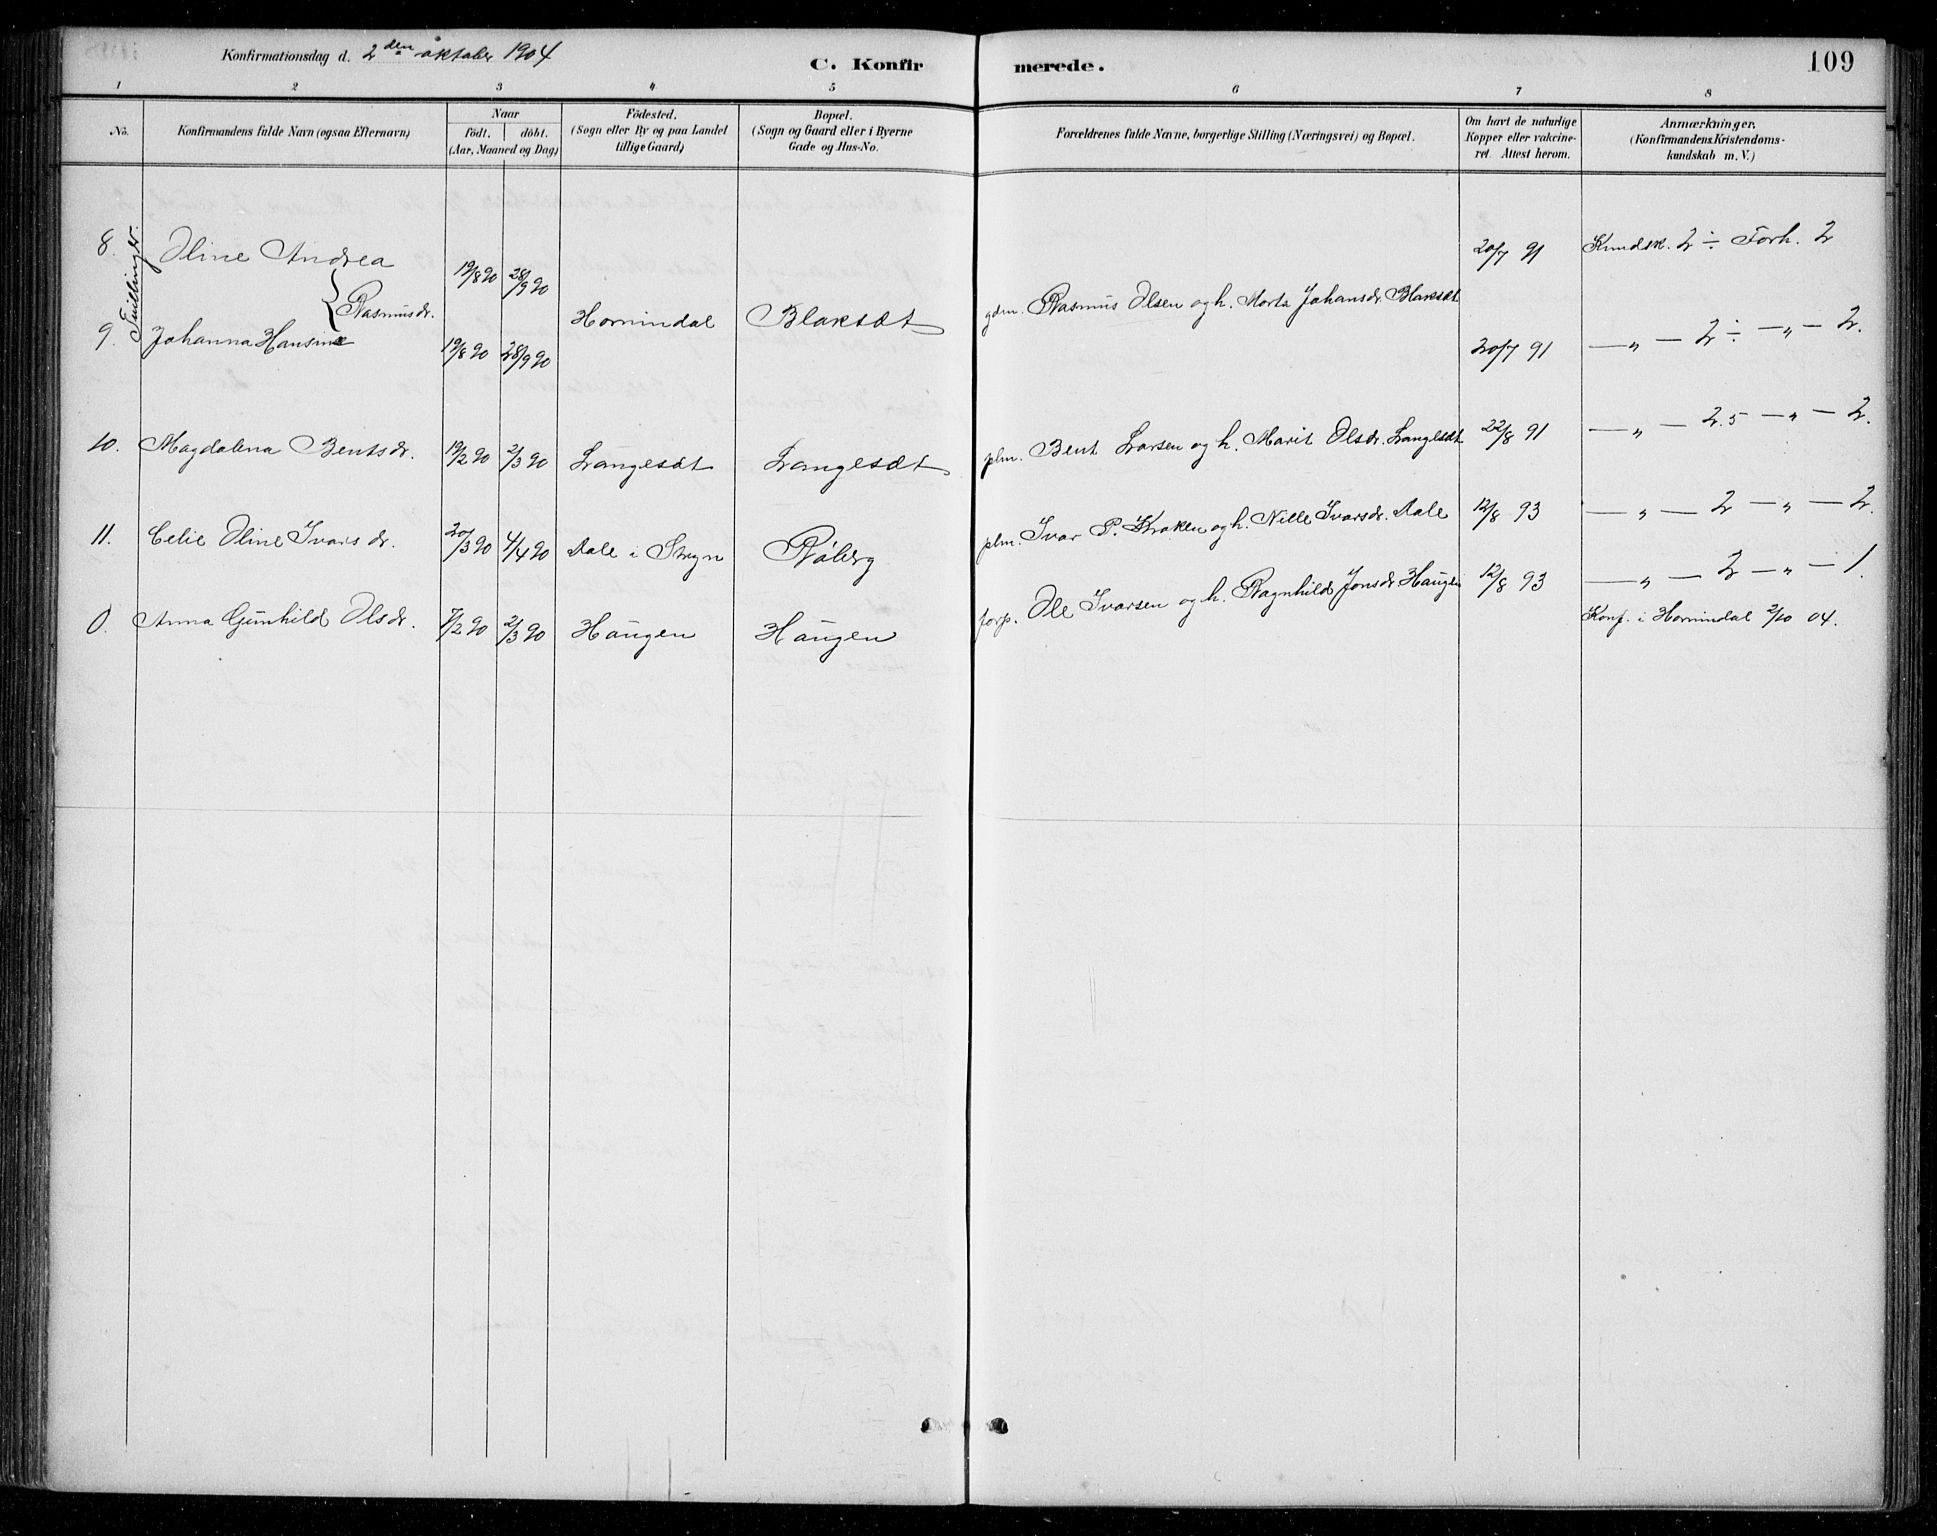 Konfirmationsdag d. 2den oktober 1904
C. Konfirmerede.
109
1 2 3 4 5 6 7 8
No.
Konfirmandens fulde Navn (ogsaa Efternavn)
Naar
født. døbt.
(Aar, Maaned og Dag)
Fødested.
(Sogn eller By og paa Landet
tillige Gaard)
Bopæl.
(Sogn og Gaard eller i Byerne
Gade og Hus-No.
Forældrenes fulde Navne, borgerlige Stilling (Næringsvei) og Bopæl.
Om havt de naturlige
Kopper eller vakcine-
ret. Attest herom.
Anmærkninger.
(Konfirmandens Kristendoms-
kundskab m. V.)
Tvillinger.
8. Oline Andrea 19/8 90 28/9 90 20/7 91 Kundsk. 2 ÷ Forh. 2
} Rasmusdr. Hornindal Blaksæt gdm. Rasmus Olsen og h. Marta Johansdr. Blaksæt
9. Johanna Hansine 19/8 90 28/9 90 20/7 91 — „ — 2 ÷ — „ — 2.
10. Magdalena Bentsdr. 19/2 90 2/3 90 Langesæt Langesæt plm. Bent Larsen og h. Marit Olsdr. Langesæt 22/8 91 — „ — 2.5 — „ — 2.
11. Celie Oline Ivarsdr. 20/3 90 4/4 90 Dale i Stryn Røberg plm. Ivar P. Kraken og h. Nille Ivarsdr. Dale 12/8 93 — „ — 2 — „ — 2.
0. Anna Gunhild Olsdr. 7/2 90 2/3 90 Haugen Haugen forp. Ole Ivarsen og h. Ragnhild Jonsdr. Haugen 12/8 93 — „ — 2 — „ — 1.
Konf. i Hornindal 2/10 04.